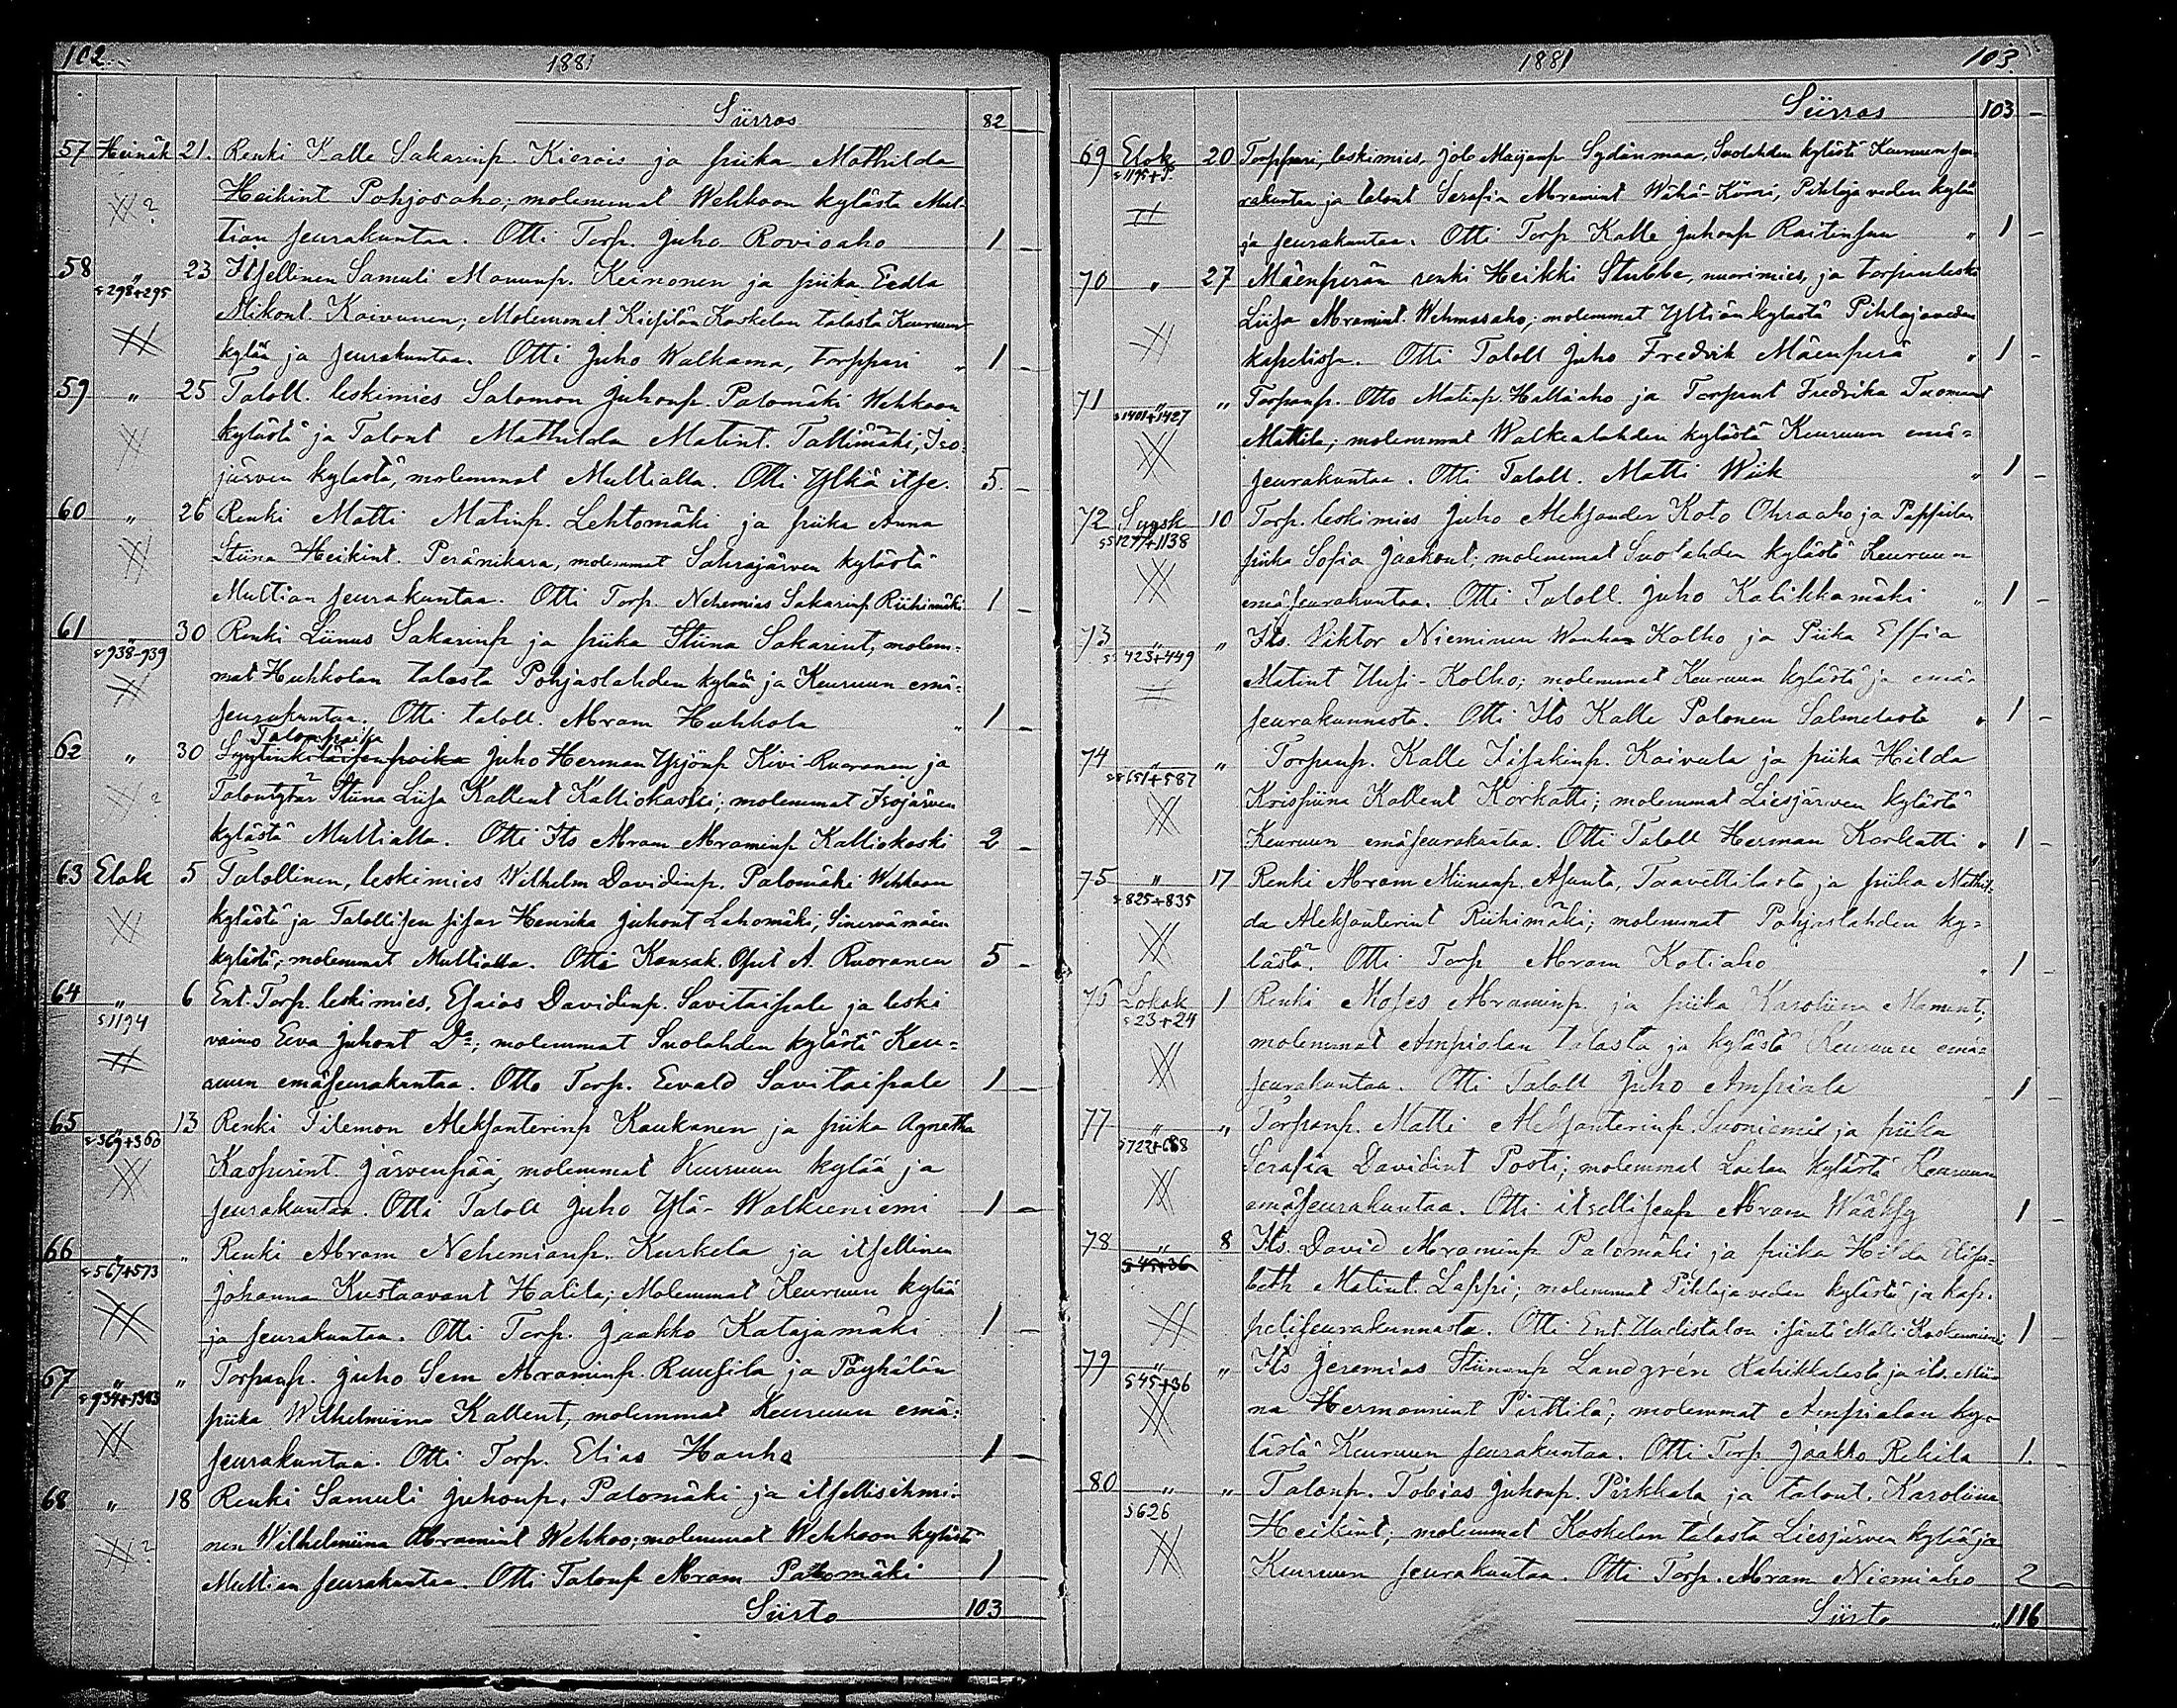 102.
1881
Siirros 82 —
57 Heinäk 21. Renki Kalle Sakarinp. Kierois ja piika Mathilda
Heikint Pohjosaho; molemmat Wehkoon kylästä Mul-
tian seurakuntaa. Otti Torp. Juho Rovioaho 1 —
58 „ 23 Itsellinen Samuli Manunp. Keinonen ja piika Eedla
s 298+295
Mikont. Koivunen; Molemmat Kiipilän Koskelan talosta Keuruun
kylää ja seurakuntaa. Otti Juho Walkama, torppari „ 1 —
59 „ 25 Taloll. leskimies Salomon Juhonp. Palomäki Wehkoon
kylästä ja Talont Mathilda Matint. Tallimäki, Iso-
järven kylästä, molemmat Multialla. Otti Ylkä itse. 5. —
60 „ 26 Renki Matti Matinp. Lehtomäki ja piika Anna
Stiina Heikint. Peränikara, molemmat Sahrajärven kylästä
Multian seurakuntaa. Otti Torp. Nehemias Sakarinp. Riihimäki 1 —
61 „ 30 Renki Liinus Sakarinp ja piika Stiina Sakarint, molem-
s 938-939
mat Huhkolan talosta Pohjaslahden kylää ja Keuruun emä-
seurakuntaa. Otti taloll. Abram Huhkola „ 1 —
Talonpoika
62 „ 30 Syytinkiläisen poika Juho Herman Yrjönp Kivi-Ruoranen ja
Talontytär Stiina Liisa Kallent Kalliokoski; molemmat Isojärven
kylästä Multialla. Otti Its Abram Abraminp Kalliokoski 2 —
63 Elok 5 Talollinen, leskimies Wilhelm Davidinp. Palomäki Wehkoon
kylästä ja Talollisen sisar Henrika Juhont Lahomäki; Sinervämäen
kylästä; molemmat Multialla. Otti Kansak. Opet A. Ruoranen 5 —
64 „ 6 Ent. Torp. leskimies, Esaias Davidinp. Savitaipale ja leski
s 1194
vaimo Eeva Juhont D:o; molemmat Suolahden kylästä Keu-
ruun emäseurakuntaa. Otto Torp. Eevald Savitaipale 1 —
65 „ 13 Renki Filemon Aleksanterinp Kaukanen ja piika Agnetha
s 369+360
Kasperint. Järvenpää, molemmat Keuruun kylää ja
seurakuntaa. Otti Taloll Juho Ylä-Walkeeniemi 1 —
66 „ „ Renki Abram Nehemianp. Kurkela ja itsellinen
s 567+573
Johanna Kustaavant Halila; Molemmat Keuruun kylää
ja seurakuntaa. Otti Torp. Jaakko Katajamäki 1 —
67 „ „ Torpanp. Juho Sem Abraminp. Ruusila ja Pöyhölän
s 934+1343
piika Wilhelmiina Kallent, molemmat Keuruun emä-
seurakuntaa. Otti Torp. Elias Hanho 1 —
68 „ 18 Renki Samuli Juhonp. Palomäki ja itsellisihmi-
nen Wilhelmiina Abramint Wehkoo; molemmat Wehkoon kylästä
Multian seurakuntaa. Otti Talonp Abram Palomäki 1
Siirto 103
1881
103.
Siirros 103 —
69 Elok 20 Torppari, leskimies, Job Maijanp Sydänmaa, Suolahden kylästä Keuruun seu-
s 1195+P.
rakuntaa ja talont Serafia Abramint Wähä-Körri, Pihlajaveden kylää
ja seurakuntaa. Otti Torp Kalle Juhonp Raitinpuu „ 1 —
70 „ 27 Mäenperän renki Heikki Stubbe, nuorimies, ja torpanleski
Liisa Abramint. Wehmasaho; molemmat Yltiän kylästä Pihlajaveden
kapelissa. Otti Taloll Juho Fredrik Mäenperä „ 1 —
71 „ „ Torpanp. Otto Matinp. Hallaaho ja Torpant Fredrika Tuomant
s 1401+1427
Mattila; molemmat Walkealahden kylästä Keuruun emä-
seurakuntaa. Otti Taloll. Matti Wiik „ 1 —
72 Syysk 10 Torp. leskimies Juho Aleksander Koto Ohraaho ja Pappilan
ss 1277+1138
piika Sofia Jaakont; molemmat Suolahden kylästä Keuruun
emäseurakuntaa. Otti Taloll. Juho Kalikkamäki „ 1 —
73 „ „ Its. Viktor Nieminen Wanha Kolho ja Piika Effia
ss 423+449
Matint Uusi-Kolho; molemmat Keuruun kylästä ja emä-
seurakunnasta. Otti Its Kalle Palonen Salmelasta „ 1 —
74 „ „ Torpanp. Kalle Iisakinp. Koivula ja piika Hilda
ss 651+587
Krispiina Kallent Korkatti; molemmat Liesjärven kylästä
Keuruun emäseurakuntaa. Otti Taloll Herman Korkatti „ 1 —
75 „ 17 Renki Abram Miinanp. Asunta, Taavettilasta ja piika Mathil-
s 825+835
da Aleksanterint Riihimäki; molemmat Pohjaslahden ky-
lästä. Otti Torp Abram Kotiaho „ 1 —
76 Lokak 1 Renki Moses Abraminp. ja piika Karoliina Mamunt,
s 23+24
molemmat Ampialan talosta ja kylästä Keuruun emä-
seurakuntaa. Otti Taloll Juho Ampiala 1 —
77 „ „ Torpanp. Matti Aleksanterinp. Suoniemi ja piika
s 722+688
Serafia Davidint Posti; molemmat Loilan kylästä Keuruun
emäseurakuntaa. Otti itsellisenp Abram Wääksy 1 —
78 „ 8 Its. David Abraminp Palomäki ja piika Hilda Elisa-
s 45+36
beth Matint. Lappi; molemmat Pihlajaveden kylästä ja kap-
peliseurakunnasta. Otti Ent. Uudistalon isäntä Matti Koskenniemi 1 —
79 „ „ Its Jeremias Stiinanp Landgrén Kahikkalasta ja its. Mii-
s 45+36
na Hermannint Pirttilä; molemmat Ampialan ky-
lästä Keuruun seurakuntaa. Otti Torp Jaakko Rekila 1. —
80 „ „ Talonp. Tobias Juhonp. Pirkkala ja talont. Karoliina
s 626
Heikint; molemmat Koskelan talosta Liesjärven kylää ja
Keuruun seurakuntaa. Otti Torp. Abram Niemiaho 2 —
Siirto „ 116